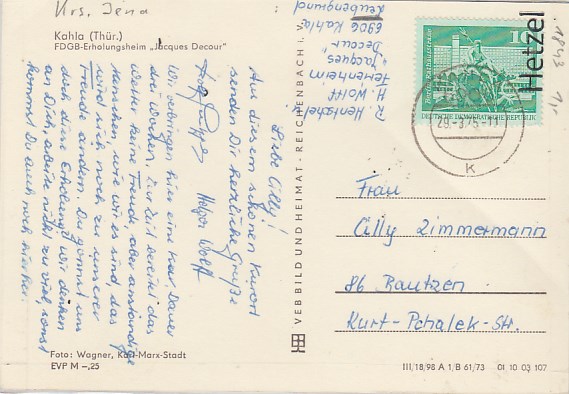 Krs. Jena
Kahla (Thür.)
FDGB-Erholungsheim „Jacques Decour"
Liebe Cilly!
Aus diesem schönen Kurort
senden Dir herzliche Grüße
Helga Wolff
Wir verbringen hier eine Kur, Dauer
drei Wochen. Zur Zeit bereitet das
Wetter keine Freude, aber anständige
Menschen, wie wir es sind, das
wird sich noch zu unserer
Freude ändern. Du gönnst uns
doch diese Erholung? Wir denken
an Dich, arbeite nicht zu viel, sonst
kommst Du auch noch hierher.
R. Hentschel
H. Wolff
Ferienheim
„Jacques
Decour"
6906 Kahla
Leubengrund
VEB BILD UND HEIMAT · REICHENBACH I. V.
10
Berlin, Rathausstraße
DEUTSCHE DEMOKRATISCHE REPUBLIK
28.-3.75-11
K
Hetzel
1843
Frau
Cilly Zimmermann
86 Bautzen
Kurt-Pchalek-Str.
Foto: Wagner, Karl-Marx-Stadt
EVP M –,25
III/18/98 A 1/B 61/73 01 10 03 107